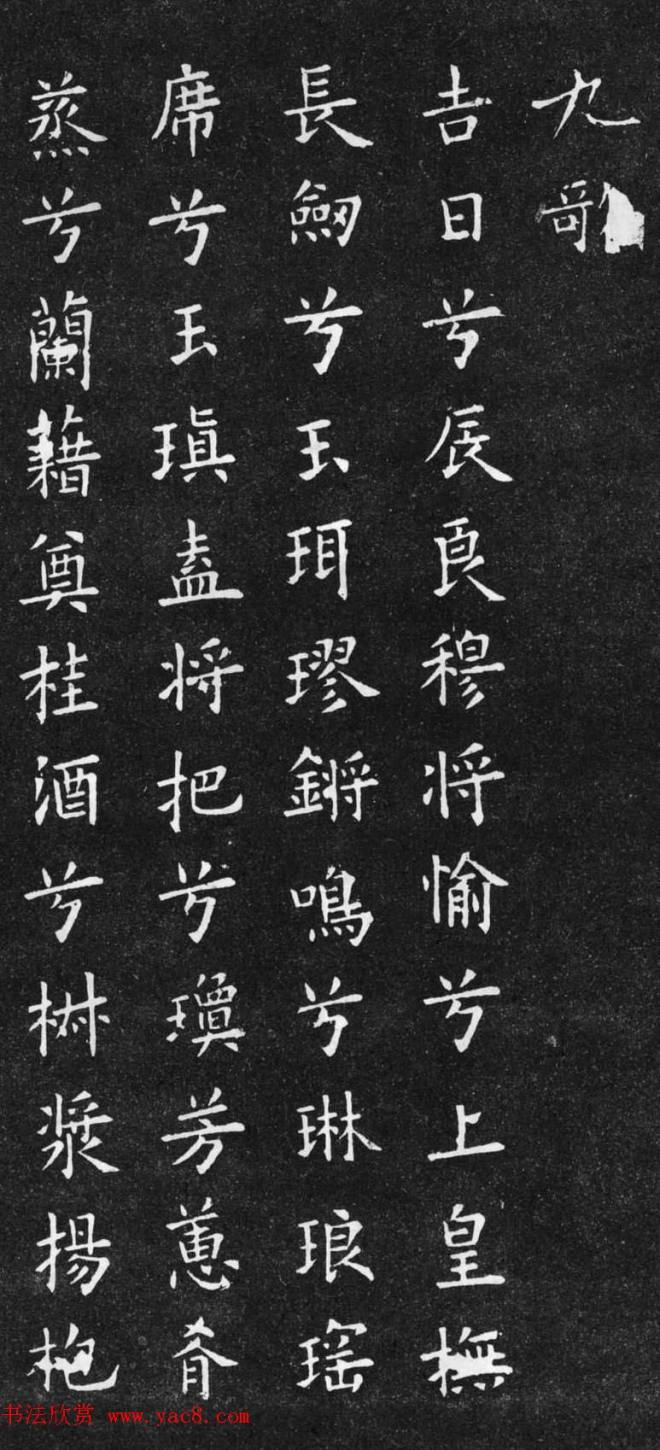 九歌
吉日兮辰良穆将愉兮上皇撫
長劒兮玉珥璆鏘鳴兮琳琅瑶
席兮玉瑱盍将把兮瓊芳蕙肴
蒸兮蘭藉奠桂酒兮椒漿揚枹
书法欣赏 www.yac8.com